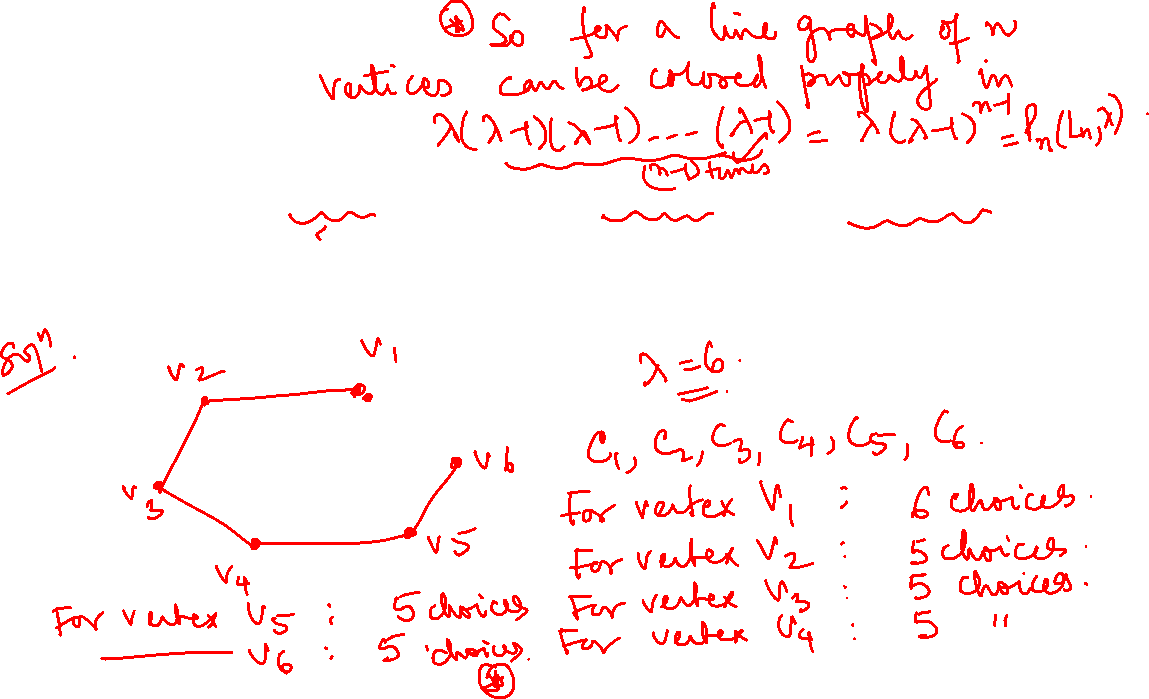 ⊛ So for a line graph of n
vertices can be colored properly in
λ(λ-1)(λ-1)---(λ-1) = λ(λ-1)^{n-1} = P_n(L_n, λ).
(n-1) times
Sol^n.
V_1
V_2
V_3
V_4
V_5
V_6
λ = 6.
C_1, C_2, C_3, C_4, C_5, C_6.
For vertex V_1 : 6 choices.
For vertex V_2 : 5 choices.
For vertex V_3 : 5 choices.
For vertex V_4 : 5 "
For vertex V_5 : 5 choices
——— V_6 : 5 choices.
⊛